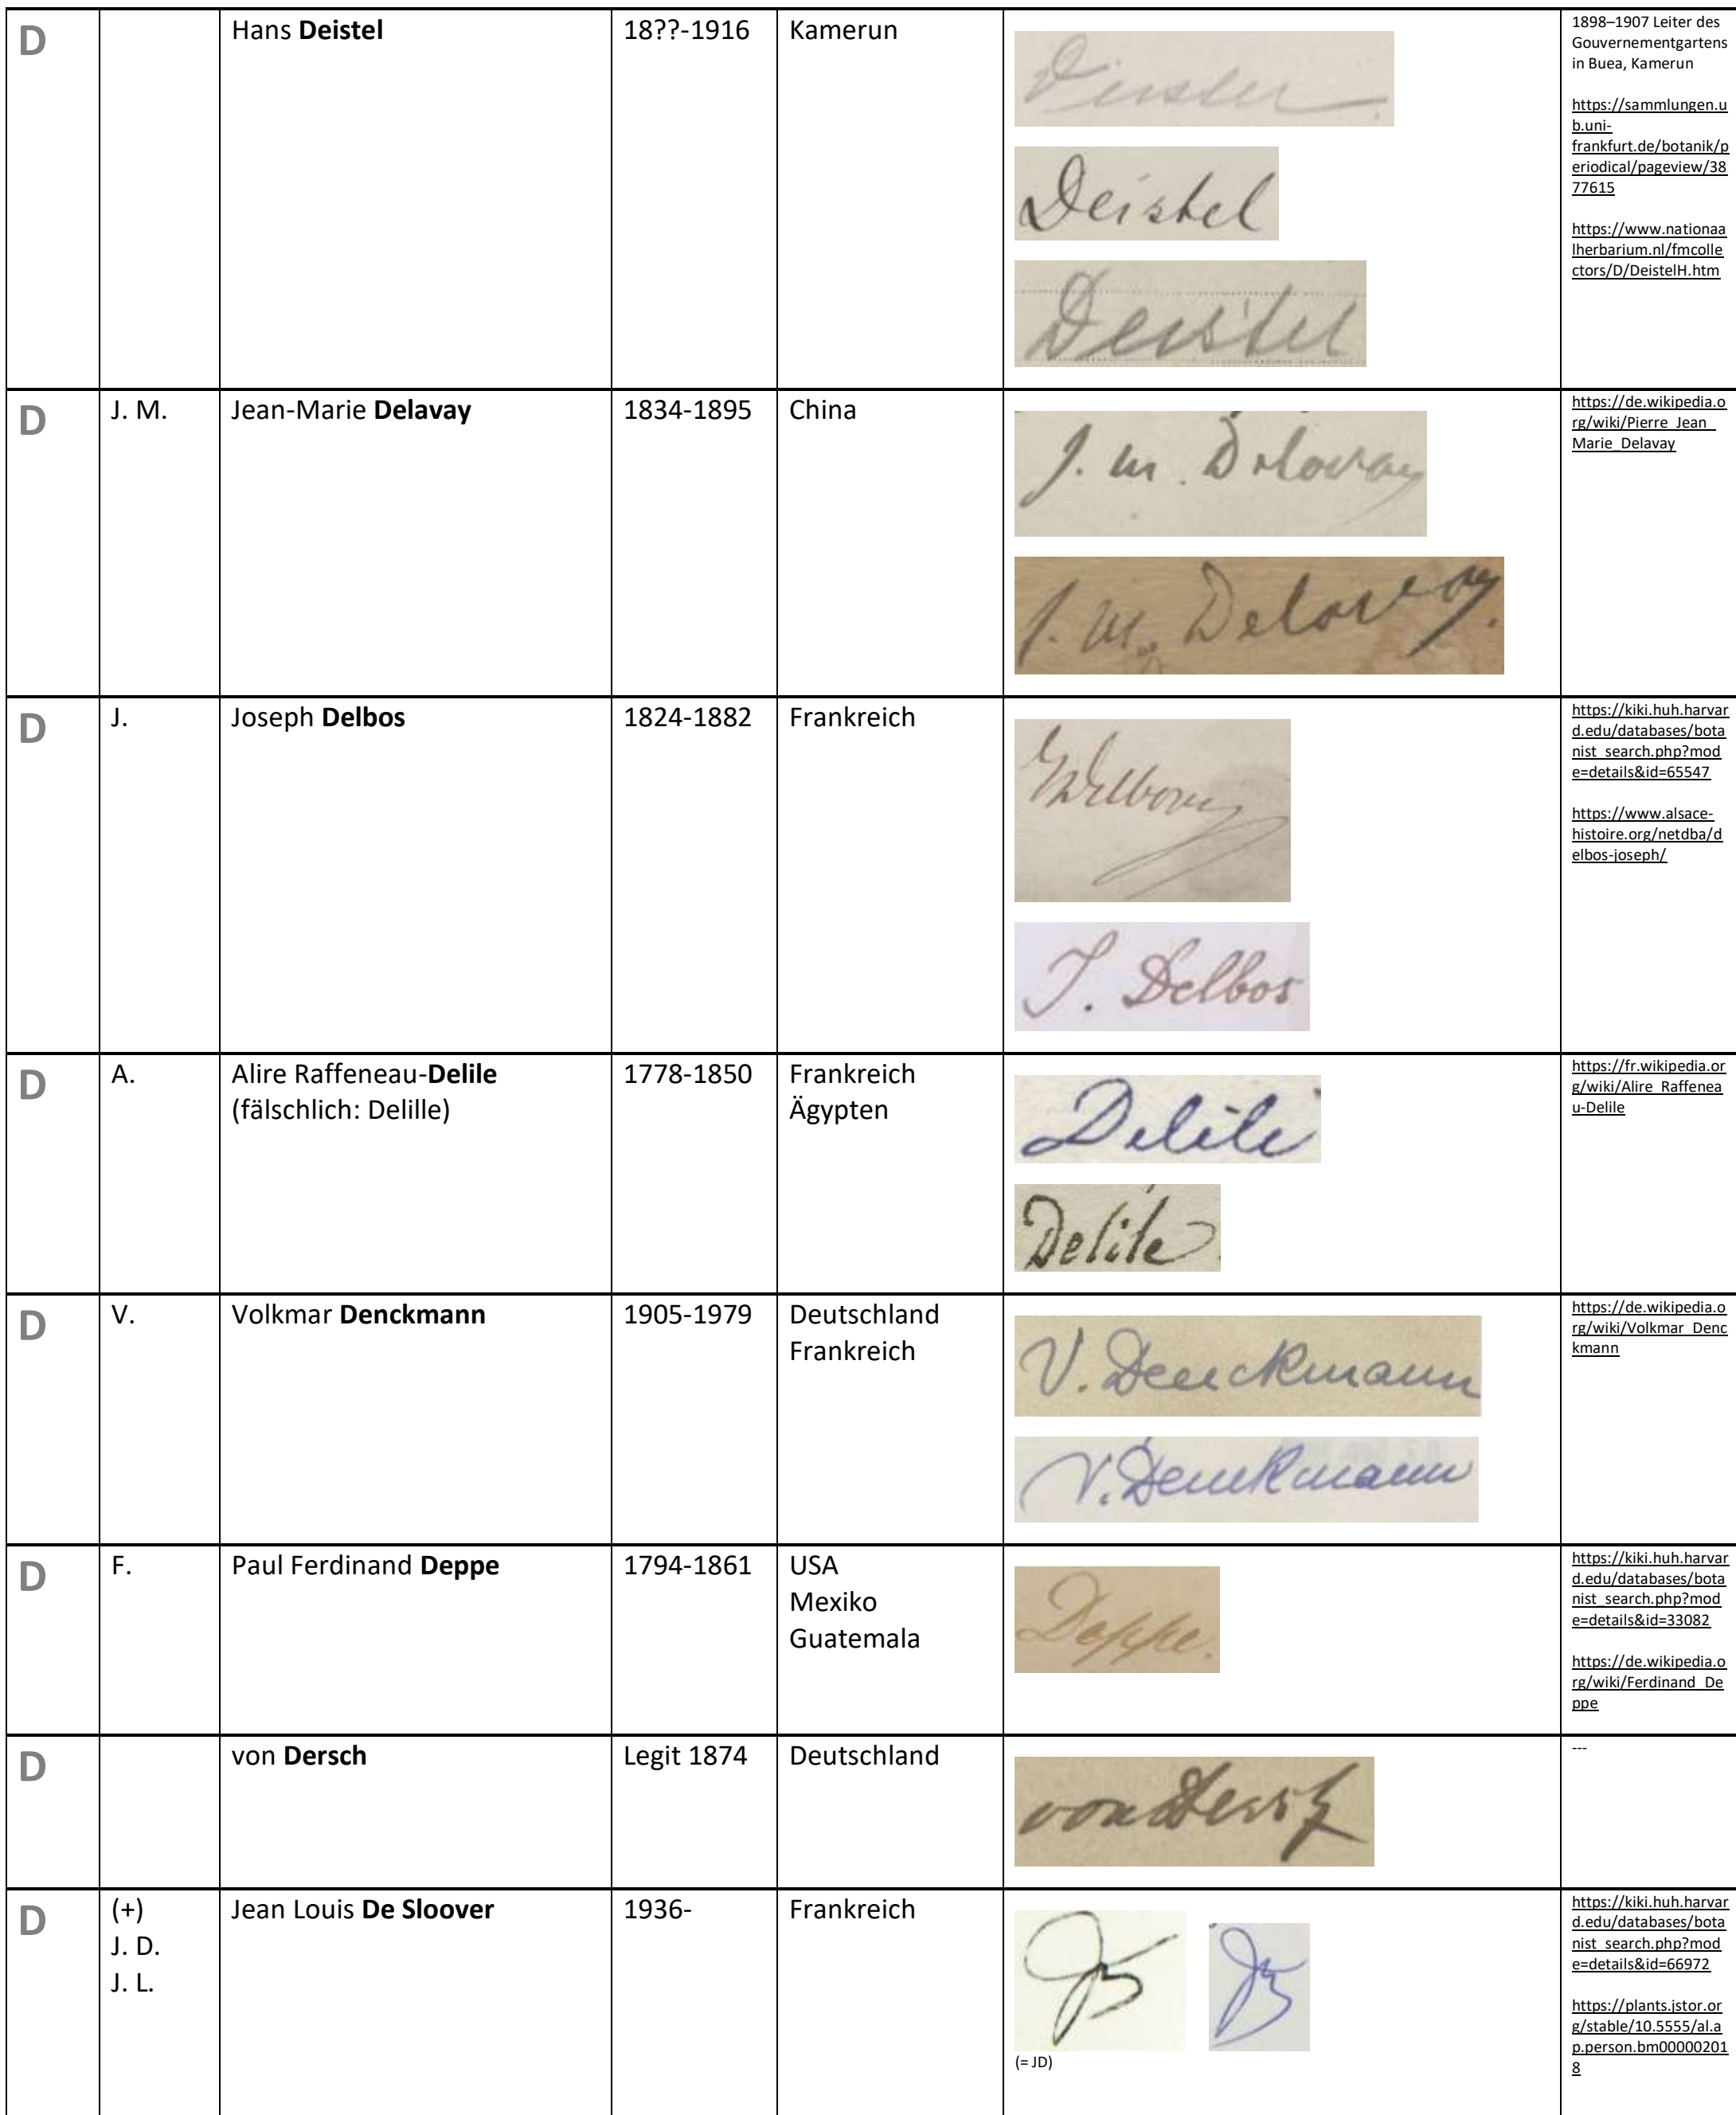 D
Hans Deistel
18??-1916
Kamerun
Deistel
Deistel
Deistel
1898–1907 Leiter des
Gouvernementgartens
in Buea, Kamerun
https://sammlungen.u
b.uni-
frankfurt.de/botanik/p
eriodical/pageview/38
77615
https://www.nationaa
lherbarium.nl/fmcolle
ctors/D/DeistelH.htm
D
J. M.
Jean-Marie Delavay
1834-1895
China
J. M. Delavay
J. M. Delavay.
https://de.wikipedia.o
rg/wiki/Pierre_Jean_
Marie_Delavay
D
J.
Joseph Delbos
1824-1882
Frankreich
J. Delbos
https://kiki.huh.harvar
d.edu/databases/bota
nist_search.php?mod
e=details&id=65547
https://www.alsace-
histoire.org/netdba/d
elbos-joseph/
D
A.
Alire Raffeneau-Delile
(fälschlich: Delille)
1778-1850
Frankreich
Ägypten
Delile
Delile
https://fr.wikipedia.or
g/wiki/Alire_Raffenea
u-Delile
D
V.
Volkmar Denckmann
1905-1979
Deutschland
Frankreich
V. Denckmann
V. Denckmann
https://de.wikipedia.o
rg/wiki/Volkmar_Denc
kmann
D
F.
Paul Ferdinand Deppe
1794-1861
USA
Mexiko
Guatemala
Deppe.
https://kiki.huh.harvar
d.edu/databases/bota
nist_search.php?mod
e=details&id=33082
https://de.wikipedia.o
rg/wiki/Ferdinand_De
ppe
D
von Dersch
Legit 1874
Deutschland
von Dersch
---
D
(+)
J. D.
J. L.
Jean Louis De Sloover
1936-
Frankreich
JD
JD
(= JD)
https://kiki.huh.harvar
d.edu/databases/bota
nist_search.php?mod
e=details&id=66972
https://plants.jstor.or
g/stable/10.5555/al.a
p.person.bm00000201
8